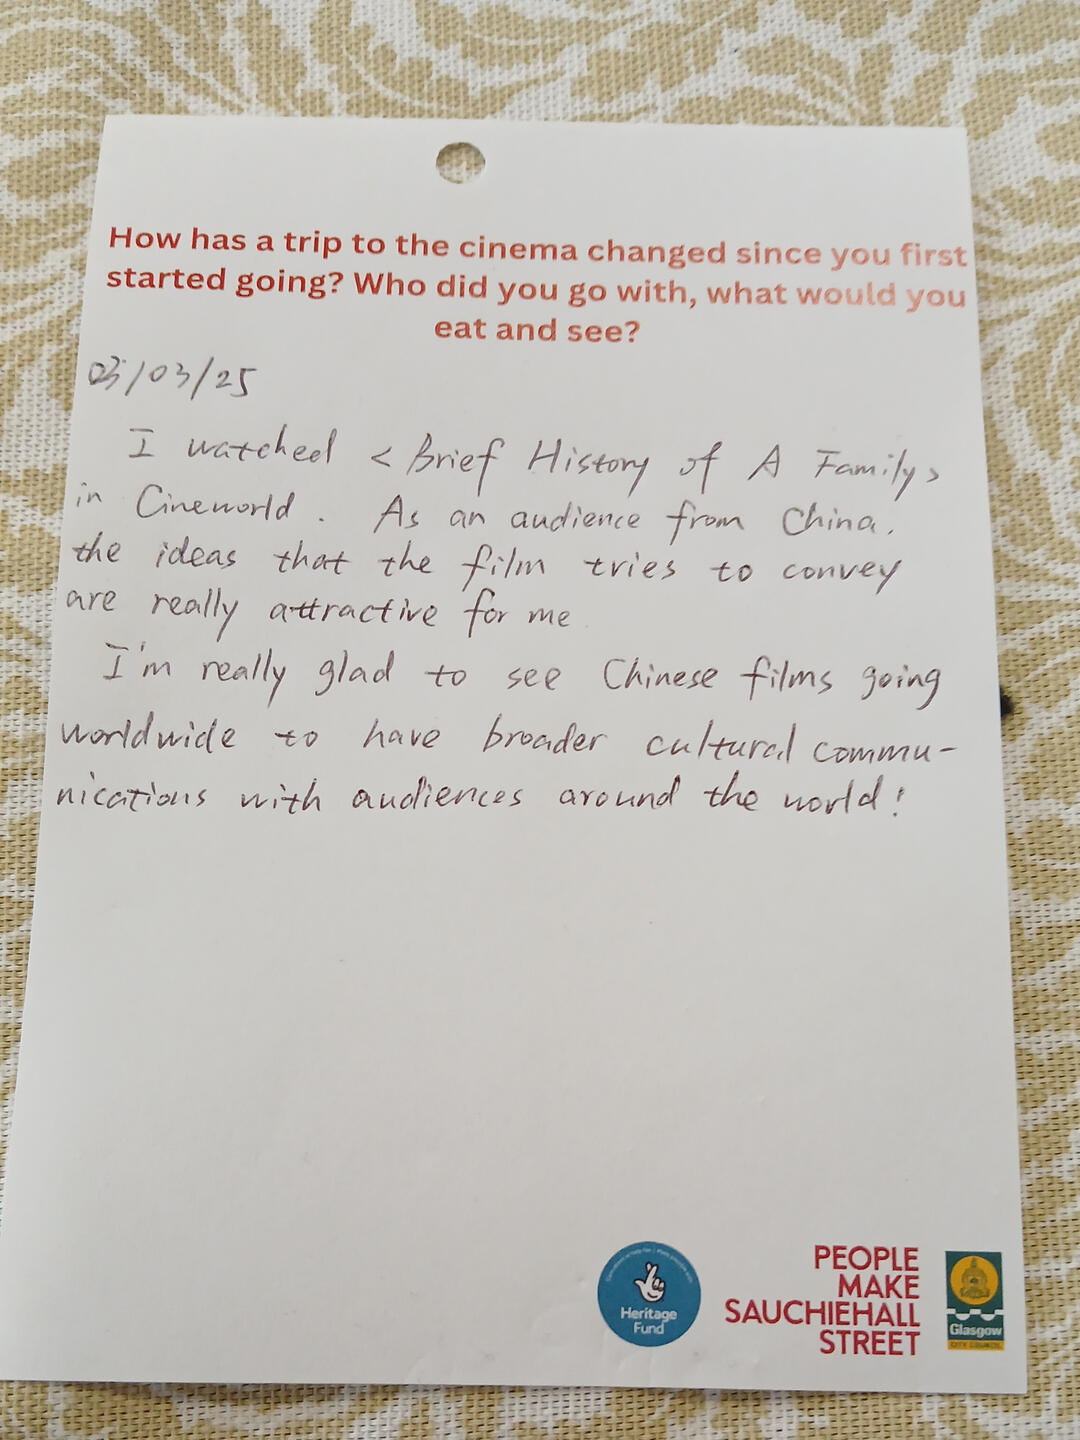 How has a trip to the cinema changed since you first
started going? Who did you go with, what would you
eat and see?
03/03/25
I watched < Brief History of A Family>
in Cineworld. As an audience from China,
the ideas that the film tries to convey
are really attractive for me
I'm really glad to see Chinese films going
worldwide to have broader cultural commu-
nications with audiences around the world!
Heritage
Fund
PEOPLE
MAKE
SAUCHIEHALL
STREET
Glasgow
CITY COUNCIL